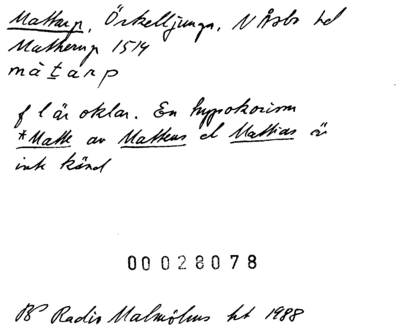 Mattarp, Örkelljunga, N Åsbo hd
Matherup 1514
màtarp
f l är oklar. En hypokorism
*Matte av Matteus el Mattias är
inte känd
00028078
BP Radio Malmöhus ht 1988